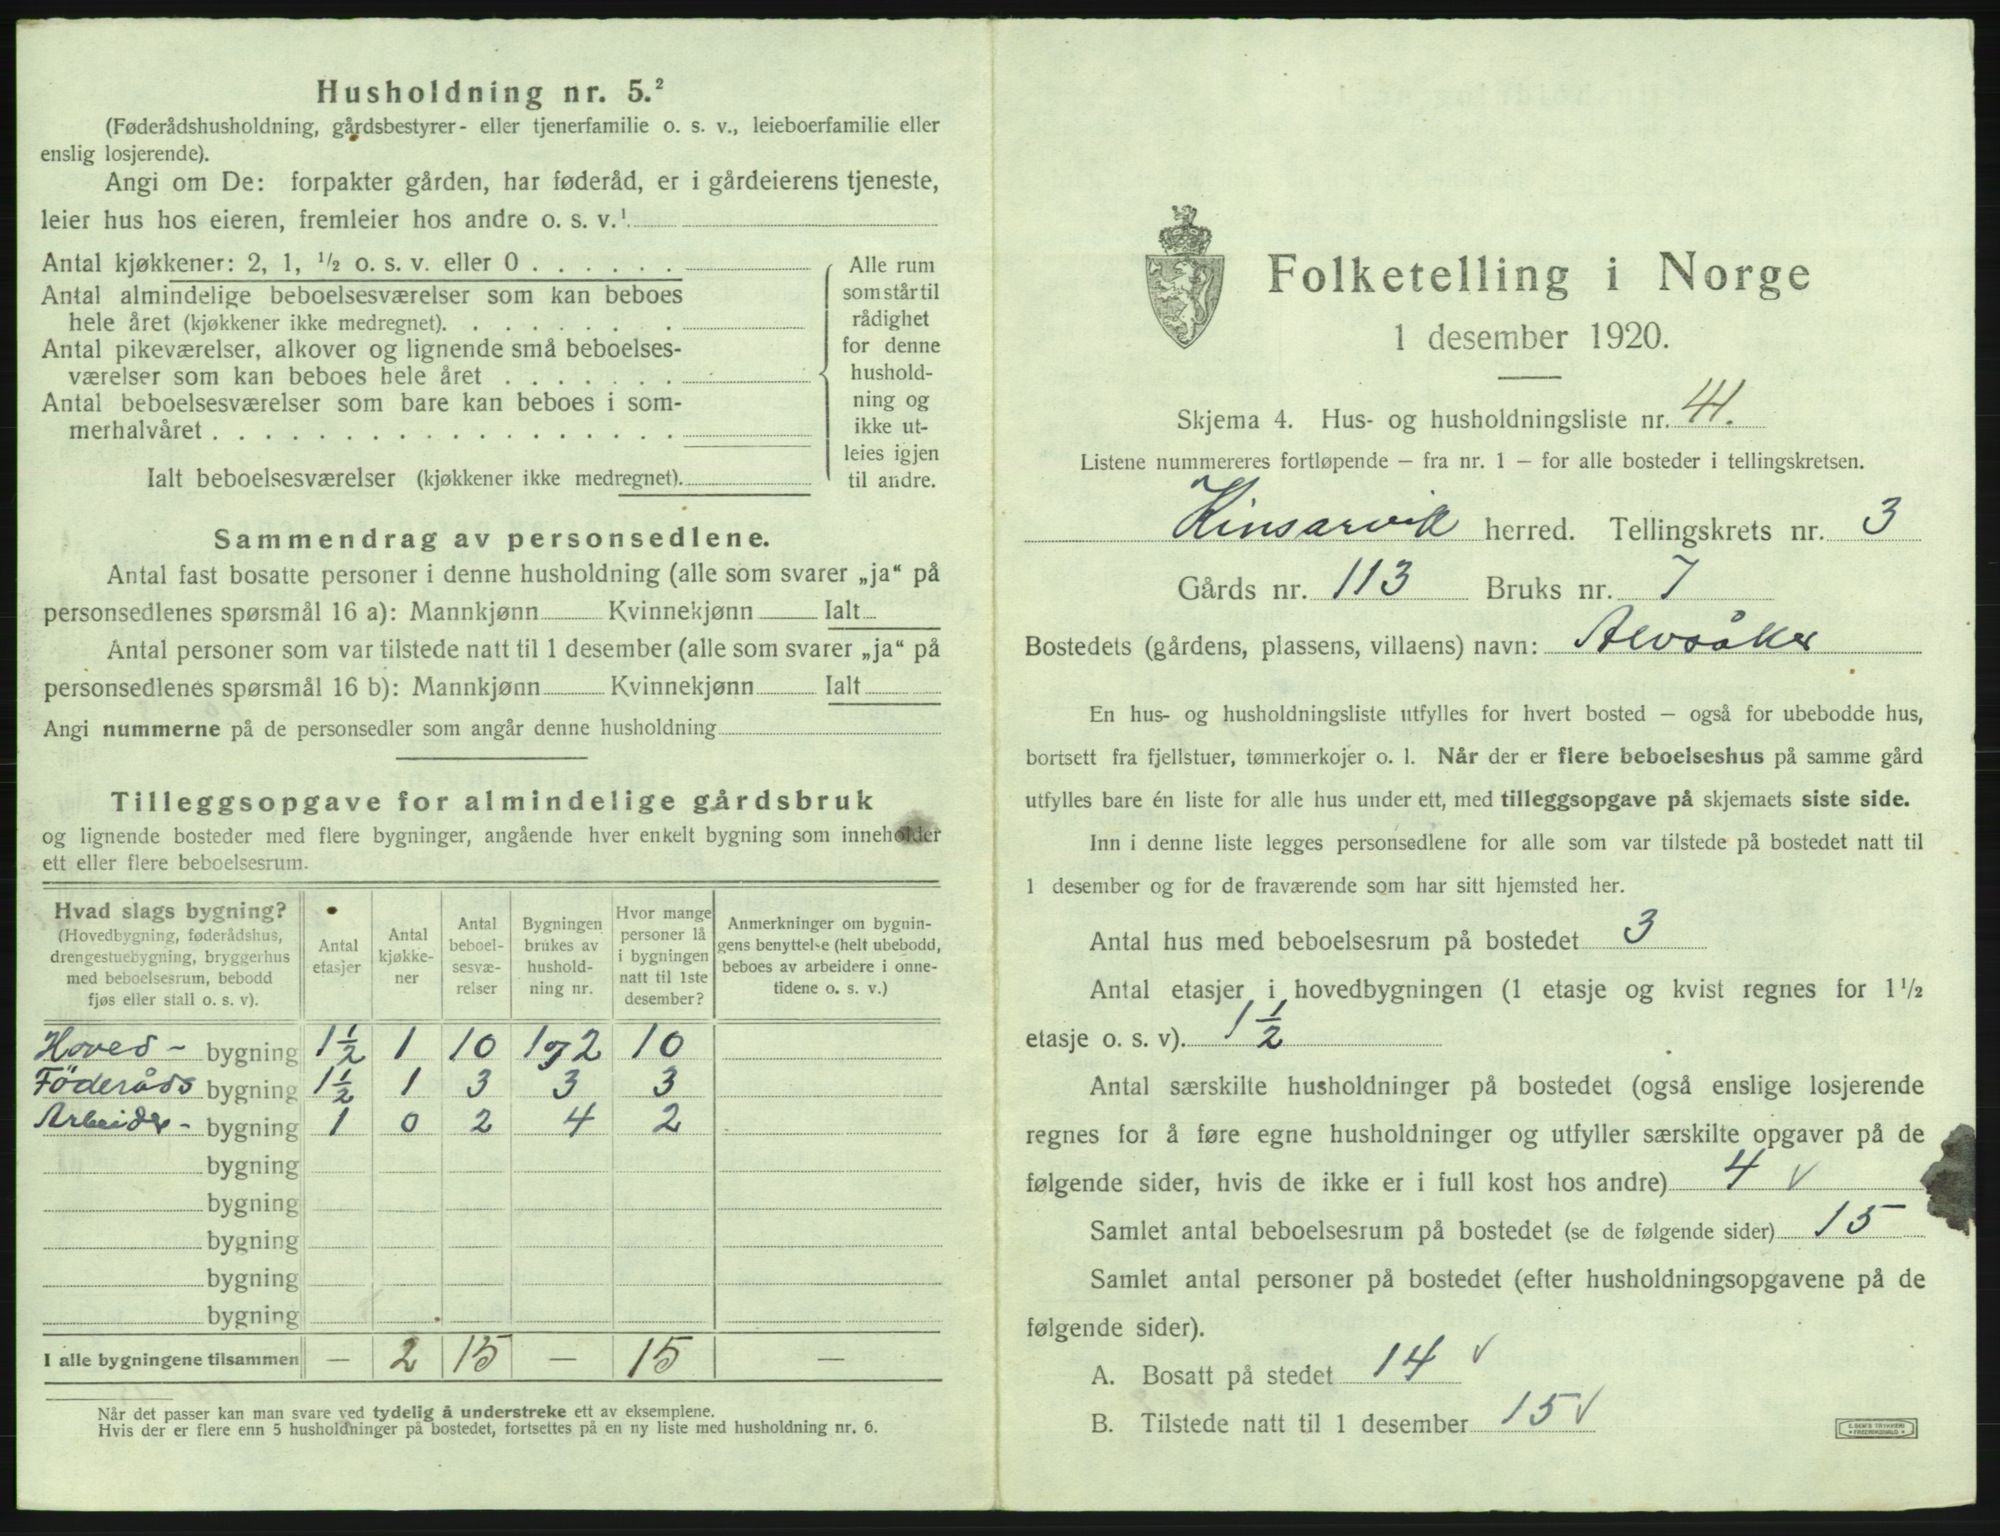 Husholdning nr. 5.²
(Føderådshusholdning, gårdsbestyrer- eller tjenerfamilie o. s. v., leieboerfamilie eller
enslig losjerende).
Angi om De: forpakter gården, har føderåd, er i gårdeierens tjeneste,
leier hus hos eieren, fremleier hos andre o. s. v.¹
Antal kjøkkener: 2, 1, ½ o. s. v. eller 0 . . . . . .
Antal almindelige beboelsesværelser som kan beboes
hele året (kjøkkener ikke medregnet). . . . . . . .
Antal pikeværelser, alkover og lignende små beboelses-
værelser som kan beboes hele året . . . . . . .
Antal beboelsesværelser som bare kan beboes i som-
merhalvåret . . . . . . . . . . . . . . . . . .
Ialt beboelsesværelser (kjøkkener ikke medregnet).
Alle rum
som står til
rådighet
for denne
hushold-
ning og
ikke ut-
leies igjen
til andre.
Sammendrag av personsedlene.
Antal fast bosatte personer i denne husholdning (alle som svarer „ja“ på
personsedlenes spørsmål 16 a): Mannkjønn Kvinnekjønn Ialt
Antal personer som var tilstede natt til 1 desember (alle som svarer „ja“ på
personsedlenes spørsmål 16 b): Mannkjønn Kvinnekjønn Ialt
Angi nummerne på de personsedler som angår denne husholdning
Tilleggsopgave for almindelige gårdsbruk
og lignende bosteder med flere bygninger, angående hver enkelt bygning som inneholder
ett eller flere beboelsesrum.
Hvad slags bygning?
(Hovedbygning, føderådshus,
drengestuebygning, bryggerhus
med beboelsesrum, bebodd
fjøs eller stall o. s. v).
Antal
etasjer
Antal
kjøkke-
ner
Antal
beboel-
sesvæ-
relser
Bygningen
brukes av
hushold-
ning nr.
Hvor mange
personer lå
i bygningen
natt til 1ste
desember?
Anmerkninger om bygnin-
gens benyttelse (helt ubebodd,
beboes av arbeidere i onne-
tidene o. s. v.)
Hoved- bygning 1½ 1 10 1og2 10
Föderåds bygning 1½ 1 3 3 3
Arbeider- bygning 1 0 2 4 2
bygning
bygning
bygning
bygning
bygning
I alle bygningene tilsammen — 2 15 — 15 —
Når det passer kan man svare ved tydelig å understreke ett av eksemplene.
Hvis der er flere enn 5 husholdninger på bostedet, fortsettes på en ny liste med husholdning nr. 6.
Folketelling i Norge
1 desember 1920.
Skjema 4. Hus- og husholdningsliste nr. 41.
Listene nummereres fortløpende – fra nr. 1 – for alle bosteder i tellingskretsen.
Kinsarvik herred. Tellingskrets nr. 3
Gårds nr. 113 Bruks nr. 7
Bostedets (gårdens, plassens, villaens) navn: Alvsåker
En hus- og husholdningsliste utfylles for hvert bosted – også for ubebodde hus,
bortsett fra fjellstuer, tømmerkojer o. l. Når der er flere beboelseshus på samme gård
utfylles bare én liste for alle hus under ett, med tilleggsopgave på skjemaets siste side.
Inn i denne liste legges personsedlene for alle som var tilstede på bostedet natt til
1 desember og for de fraværende som har sitt hjemsted her.
Antal hus med beboelsesrum på bostedet 3
Antal etasjer i hovedbygningen (1 etasje og kvist regnes for 1½
etasje o. s. v). 1½
Antal særskilte husholdninger på bostedet (også enslige losjerende
regnes for å føre egne husholdninger og utfyller særskilte opgaver på de
følgende sider, hvis de ikke er i full kost hos andre) 4 ✓
Samlet antal beboelsesrum på bostedet (se de følgende sider) 15
Samlet antal personer på bostedet (efter husholdningsopgavene på de
følgende sider).
A. Bosatt på stedet 14 ✓
B. Tilstede natt til 1 desember 15 ✓